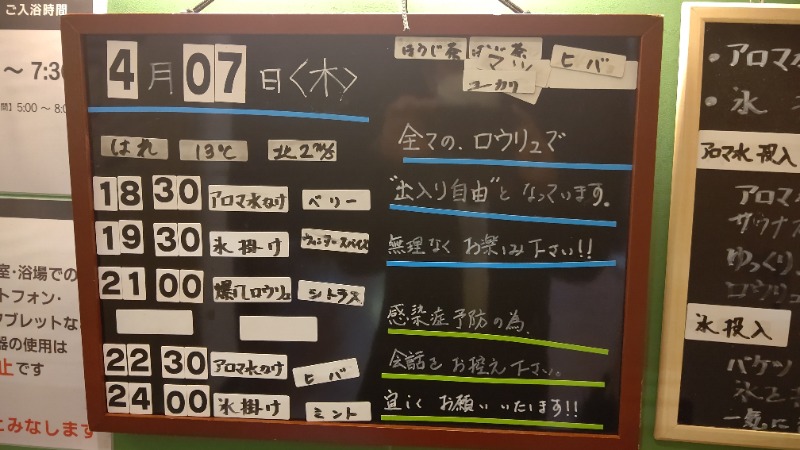 ご入浴時間
～ 7:30
間】5:00 ～ 8:0
室・浴場での
トフォン・
タブレットな
器の使用は
止です
とみなします
4月07日〈木〉
はれ 13℃ 北2m/s
18 30 アロマ水かけ ベリー
19 30 氷掛け ウィンタースパイス
21 00 爆风ロウリュ シトラス
22 30 アロマ水かけ ヒバ
24 00 氷掛け ミント
ほうじ茶 ほうじ茶
ユーカリ
ヒバ
全ての、ロウリュで
"出入り自由"となっています。
無理なくお楽しみ下さい!!
感染症予防の為、
会話をお控え下さい。
宜しくお願いいたします!!
・アロマ水
・氷
アロマ水投入
アロマ
サウナス
ゆっくり
ロウリュ
氷投入
バケツ
氷を
一気に